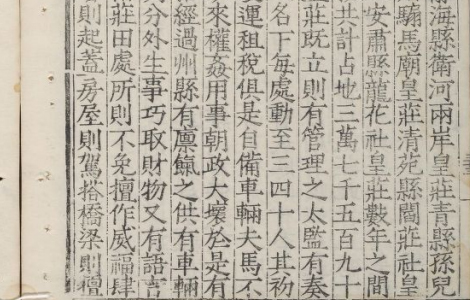 靜海縣衛河兩岸皇莊青縣孫兒
騸馬廟皇莊清苑縣閻莊社皇
安肅縣龍花社皇莊數年之間
共計占地三萬七千五百九十
莊既立則有管理之太監有奏
名下每處動至三四十人其初
運租稅俱是自備車輛夫馬不
來權姦用事朝政大壞於是有
經過州縣有廩餼之供有車輛
分外生事巧取財物又有語言
莊田處所則不免擅作威福肆
則起蓋房屋則駕搭橋梁則擅